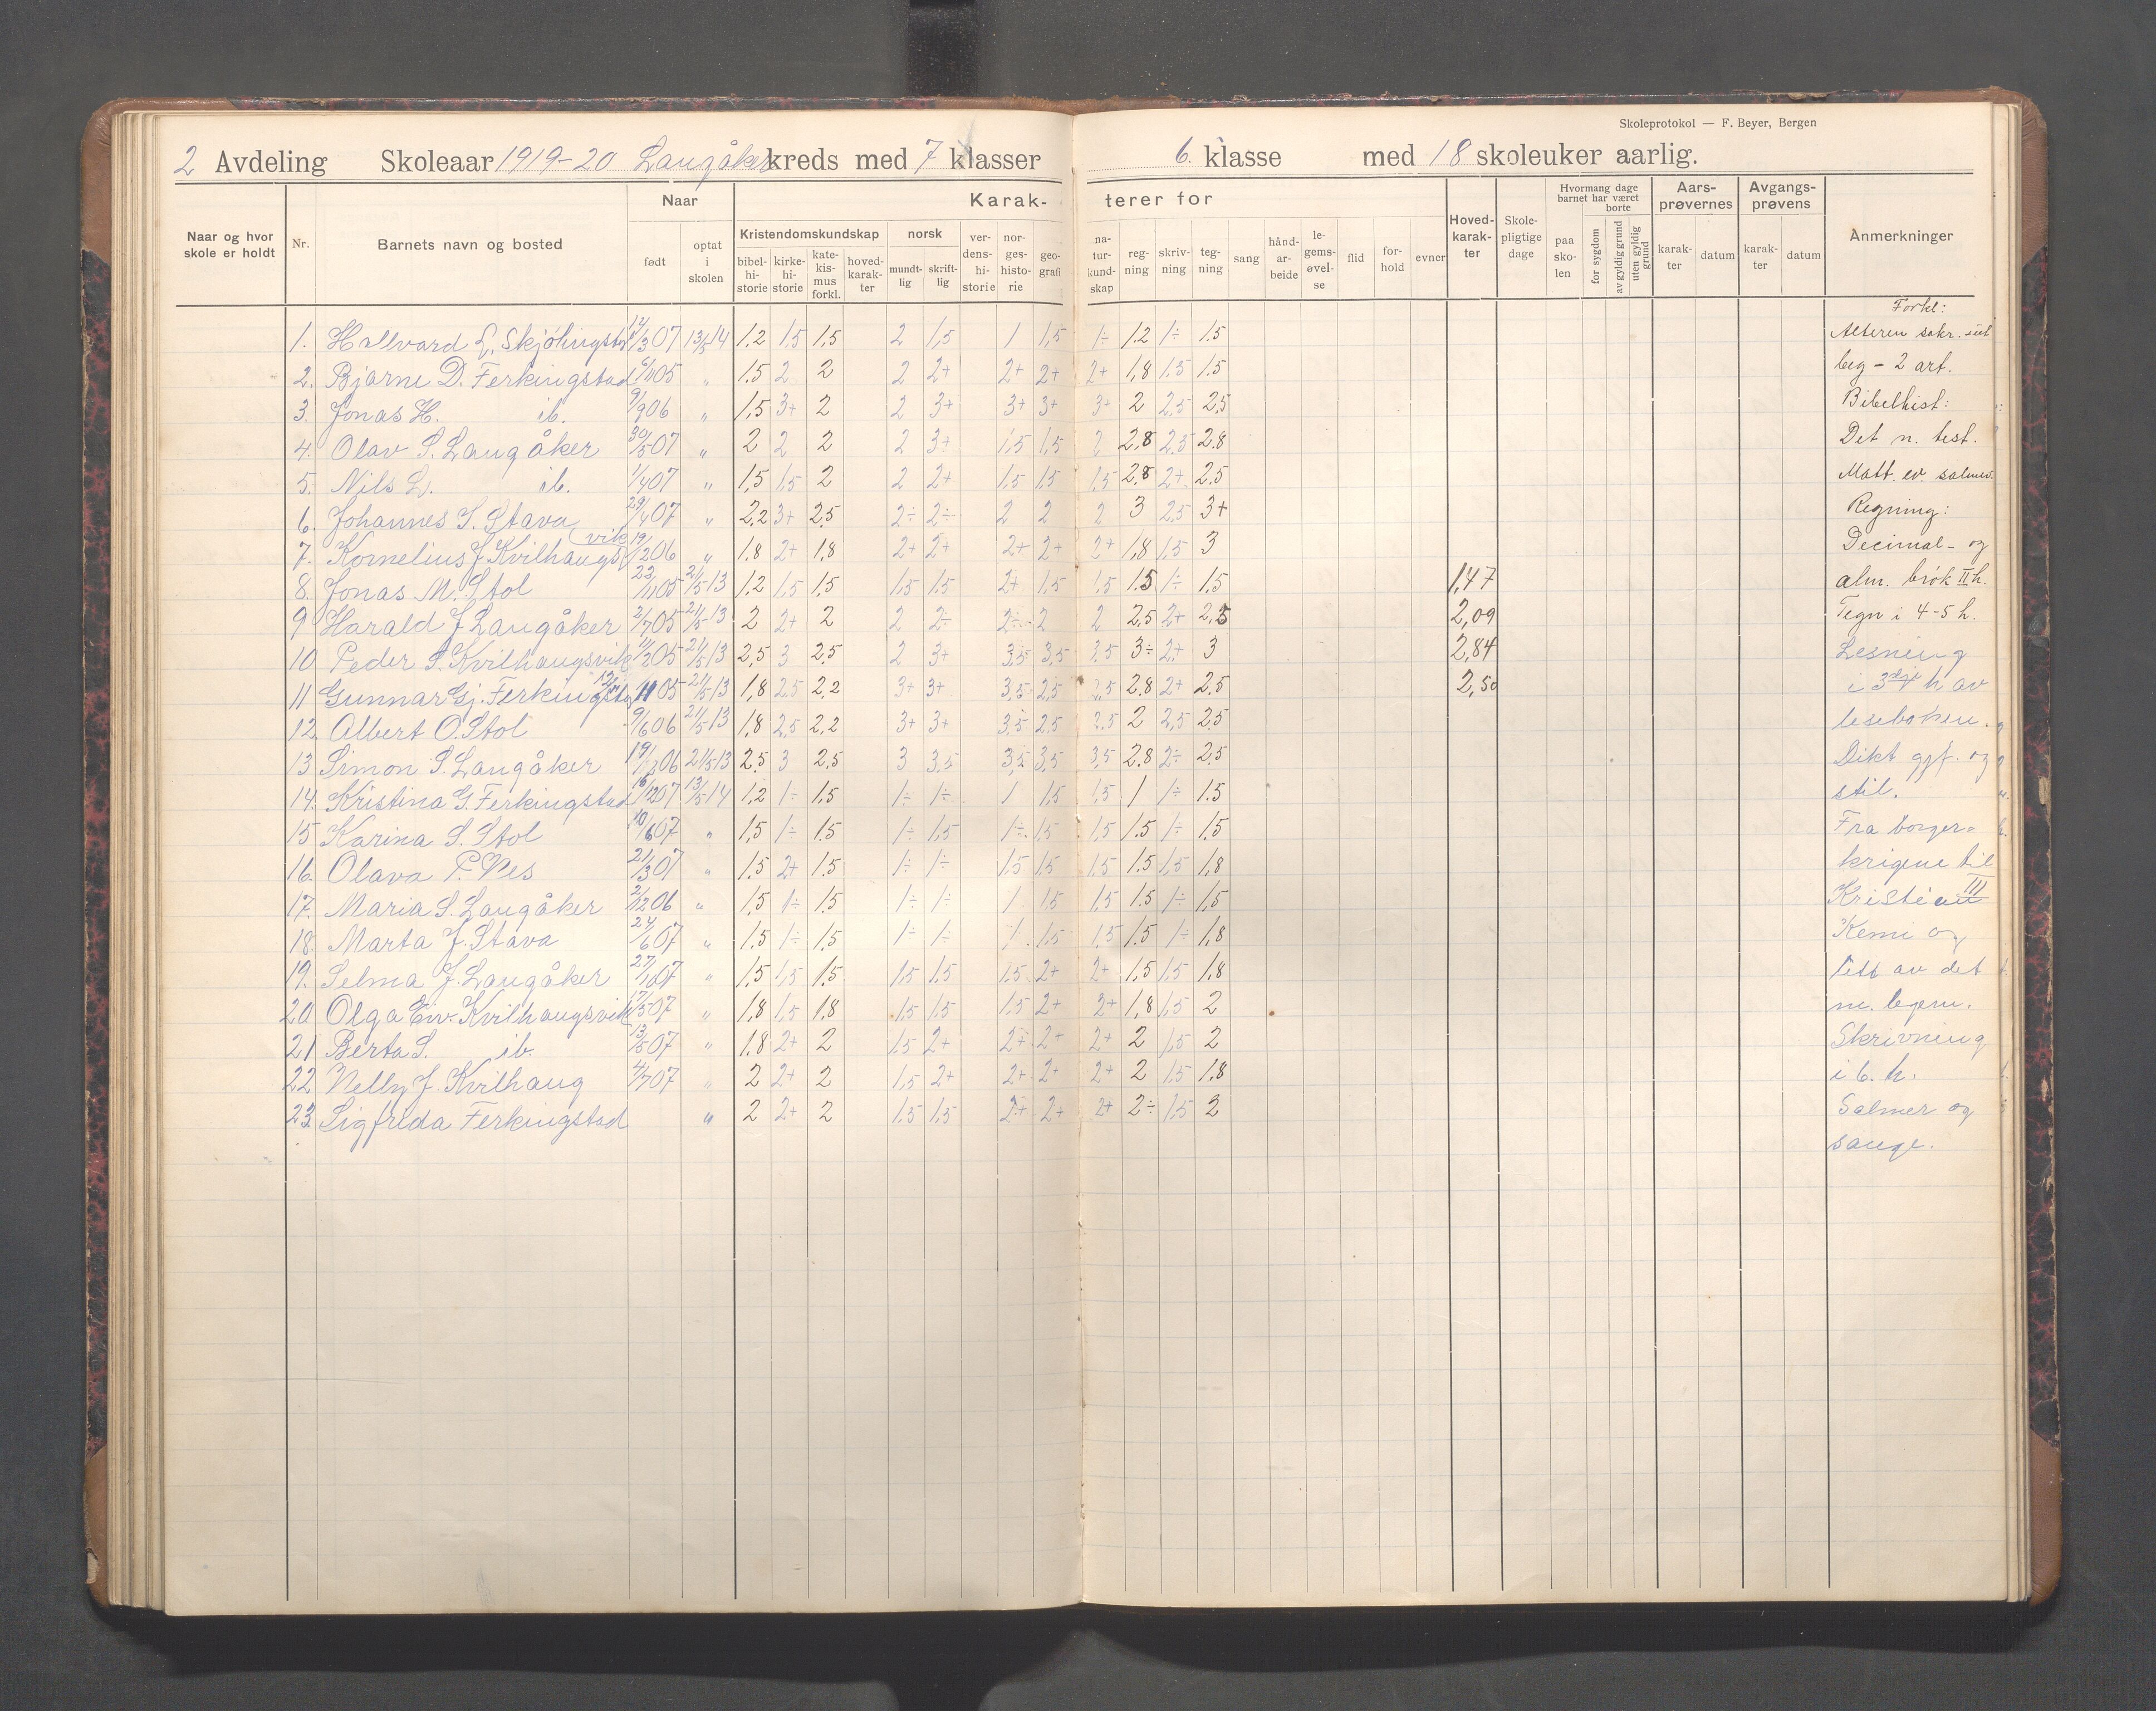 Skoleprotokol — F. Beyer, Bergen
2 Avdeling Skoleaar 1919-20 Langåker kreds med 7 klasser 6. klasse med 18 skoleuker aarlig.
Naar og hvor skole er holdt Nr. Barnets navn og bosted Naar født optat i skolen Karakterer for Kristendomskundskap bibelhistorie kirkehistorie katekismus forkl. hovedkarakter norsk mundtlig skriftlig verdenshistorie norgeshistorie geografi naturkundskap regning skrivning tegning sang håndarbeide legemsøvelse flid forhold evner Hovedkarakter Skolepligtige dage Hvormang dage barnet har været paa skolen borte for sygdom av gyldig grund uten gyldig grund Aarsprøvernes karakter datum Avgangsprøvens karakter datum Anmerkninger
Forkl:
1. Hallvard L. Skjölingstad 14/3 07 13/5 14 1.2 1.5 1,5 2 1,5 1 1,5 1÷ 1.2 1÷ 1.5 Alteren sakr.
2. Bjarne D. Ferkingstad 6/11 05 " 1.5 2 2 2 2+ 2+ 2+ 2+ 1,8 1.5 1.5 beg - 2 art.
3. Jonas H. ib. 9/9 06 " 1,5 3+ 2 2 3+ 3+ 3+ 3+ 2 2,5 2,5 Bibelhist:
4. Olav S. Langåker 30/5 07 " 2 2 2 2 3+ 1,5 1,5 2 2,8 2,5 2.8 Det n. test.
5. Nils L. ib. 1/4 07 " 1,5 1,5 2 2 2+ 1,5 1,5 1,5 2,8 2+ 2.5 Matt. ev. salmer.
6. Johannes S. Stava 29/4 07 " 2,2 3+ 2,5 2÷ 2÷ 2 2 2 3 2,5 3+ Regning:
7. Kornelius J Kvilhaugs(vik 19/2 06 " 1,8 2+ 1,8 2+ 2+ 2+ 2+ 2+ 1,8 1,5 3 Decimal- og
8. Jonas M. Stol 22/11 05 21/5 13 1,2 1,5 1,5 1,5 1.5 2+ 1,5 1,5 1.5 1÷ 1,5 1,47 alm. brök II h.
9 Harald J Langåker 2/7 05 21/5 13 2 2+ 2 2 2÷ 2÷ 2 2 2,5 2+ 2,5 2,09 Tegn i 4-5 h.
10 Peder S. Kvilhaugsvik 11/2 05 21/5 13 2,5 3 2,5 2 3+ 3,5 3,5 3,5 3÷ 2+ 3 2,84 Lesning
11 Gunnar Gj. Ferkingstad 13/11 05 21/5 13 1,8 2,5 2,2 3+ 3+ 3,5 2,5 2,5 2.8 2+ 2.5 2,50 i 3dje h av
12. Albert O. Stol 9/6 06 21/5 13 1,8 2,5 2,2 3+ 3+ 3,5 2.5 2,5 2 2,5 2.5 leseboken.
13. Simon S. Langåker 19/3 06 21/5 13 2,5 3 2,5 3 3,5 3,5 3,5 3,5 2.8 2÷ 2,5 Dikt ggf. og
14. Kristina G. Ferkingstad 16/12 07 13/5 14 1,2 1÷ 1,5 1÷ 1÷ 1 1,5 1,5 1 1÷ 1.5 stil.
15 Karina S. Stol 10/6 07 " 1,5 1÷ 1.5 1÷ 1,5 1÷ 1,5 1,5 1.5 1÷ 1,5 Fra borger=
16. Olava P. Nes 21/3 07 " 1.5 2+ 1.5 1÷ 1÷ 1.5 1.5 1.5 1.5 1.5 1,8 krigene til
17. Maria S. Langåker 2/12 06 " 1,5 1÷ 1.5 1÷ 1÷ 1 1,5 1,5 1.5 1÷ 1,5 Kristian III
18. Marta J. Stava 24/6 07 " 1.5 1÷ 1,5 1÷ 1÷ 1 1.5 1,5 1.5 1÷ 1,8 Kemi og
19. Selma J. Langåker 27/1 07 " 1,5 1,5 1.5 1.5 1.5 1.5 2+ 2+ 1,5 1.5 1.8 litt av det
20 Olga Eiv. Kvilhaugsvik 17/5 07 " 1,8 1,5 1,8 1.5 1.5 1.5 2+ 2+ 1,8 1.5 2 m. legem.
21 Berta S. ib. 13/5 07 " 1.8 2+ 2 1.5 2+ 2+ 2+ 2+ 2 1,5 2 Skrivning
22 Nelly J. Kvilhaug 4/7 07 " 2 2+ 2 1,5 2+ 2+ 2+ 2+ 2 1.5 1.8 i 6. h.
23. Sigfrida Ferkingstad " 2 2+ 2 1.5 1.5 2+ 2+ 2+ 2÷ 1.5 2 Salmer og
sange.